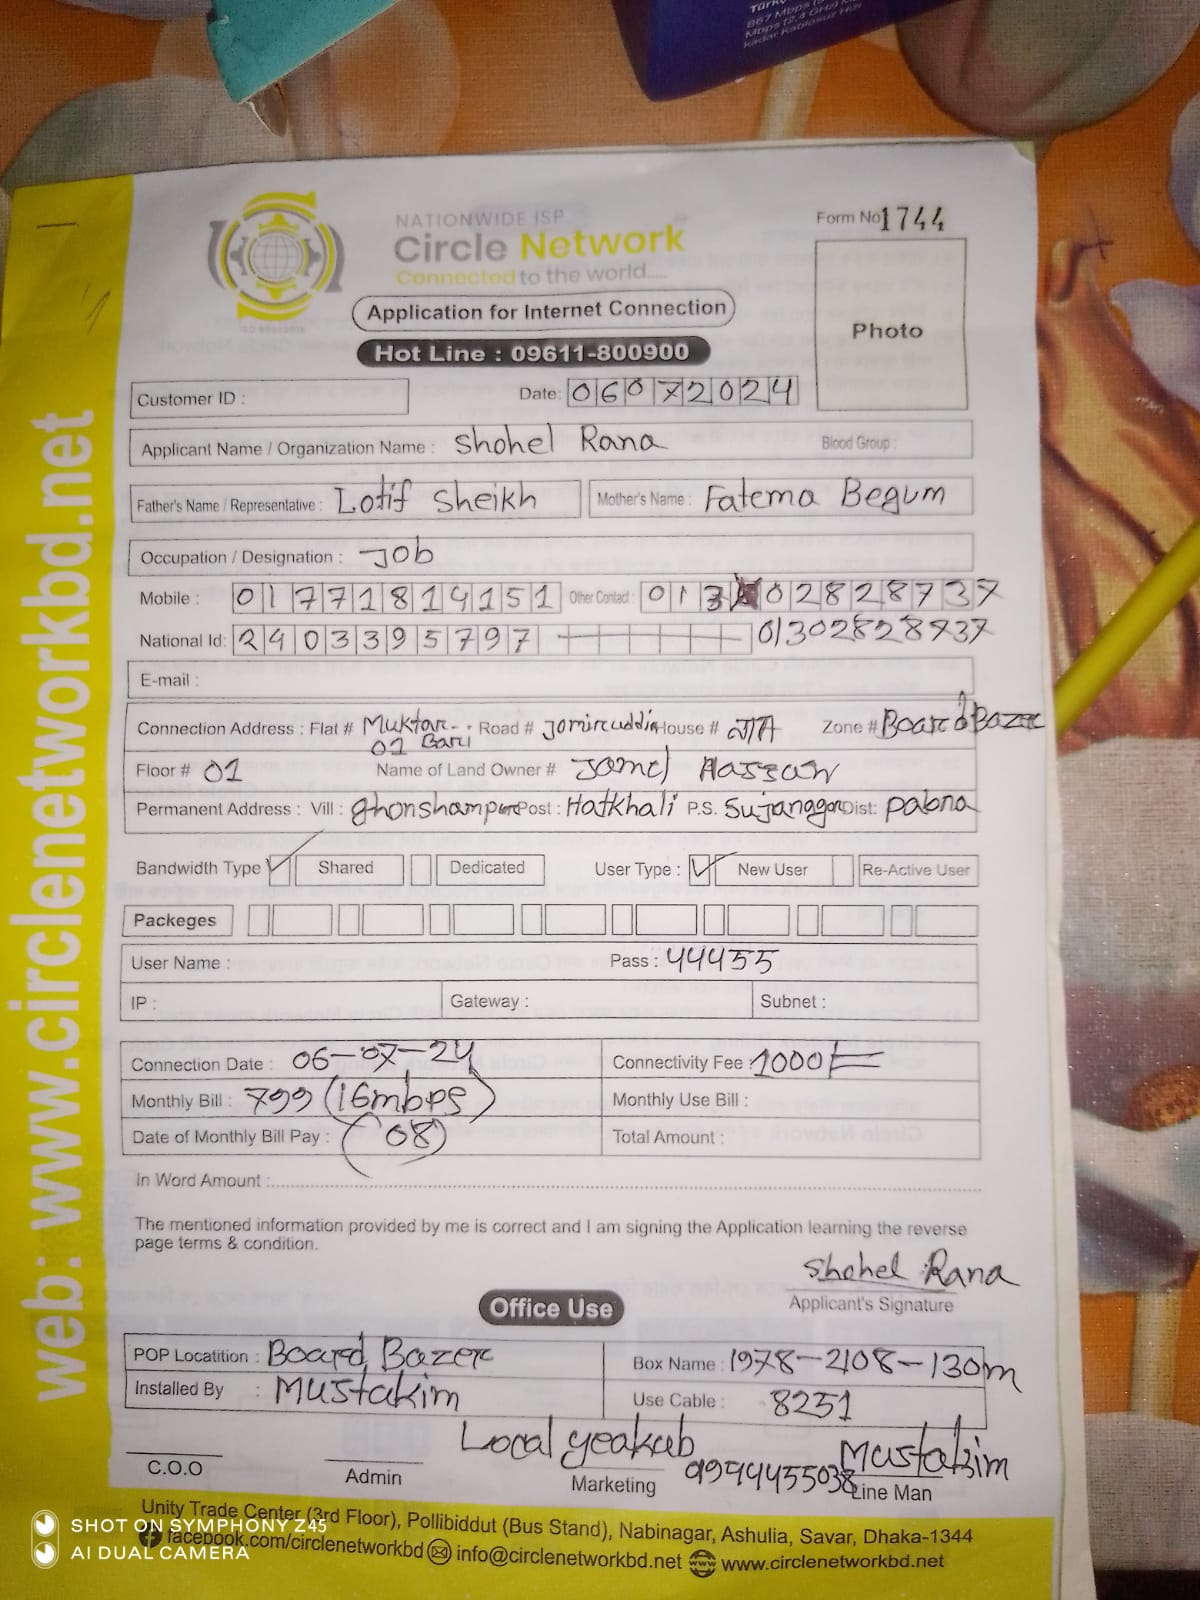 Türk
867 Mbps (5
Mbps (2.4 GHz)
kadar Kablosuz Hız
NATIONWIDE ISP
Circle Network
Connected to the world.....
Form No 1744
Photo
Application for Internet Connection
Hot Line : 09611-800900
Customer ID :
Date: 06072024
Applicant Name / Organization Name : Shohel Rana Blood Group :
Father's Name / Representative : Lotif Sheikh Mother's Name : Fatema Begum
Occupation / Designation : Job
Mobile : 01771814151 Other Contact : 013 02828737
National Id: 2403395797 01302828737
E-mail :
Connection Address : Flat # Muktar Road # Jomiruddin House # N/A Zone # Board Bazer
01 Bari
Floor # 01 Name of Land Owner # Jamel Hassan
Permanent Address : Vill : ghonshampur Post : Hatkhali P.S. Sujanggor Dist: pabna
Bandwidth Type Shared Dedicated User Type : New User Re-Active User
Packeges
User Name : Pass : 44455
IP : Gateway : Subnet :
Connection Date : 06-07-24 Connectivity Fee : 1000/=
Monthly Bill : 799 (16mbps) Monthly Use Bill :
Date of Monthly Bill Pay : (08) Total Amount :
In Word Amount :
The mentioned information provided by me is correct and I am signing the Application learning the reverse
page terms & condition.
Shohel Rana
Applicant's Signature
Office Use
POP Locatition : Board Bazer Box Name : 1978-2108-130m
Installed By : Mustakim Use Cable : 8251
Local yeakub Mustakim
C.O.O Admin Marketing Line Man
Unity Trade Center (3rd Floor), Pollibiddut (Bus Stand), Nabinagar, Ashulia, Savar, Dhaka-1344
facebook.com/circlenetworkbd info@circlenetworkbd.net www.circlenetworkbd.net
web: www.circlenetworkbd.net
SHOT ON SYMPHONY Z45
AI DUAL CAMERA